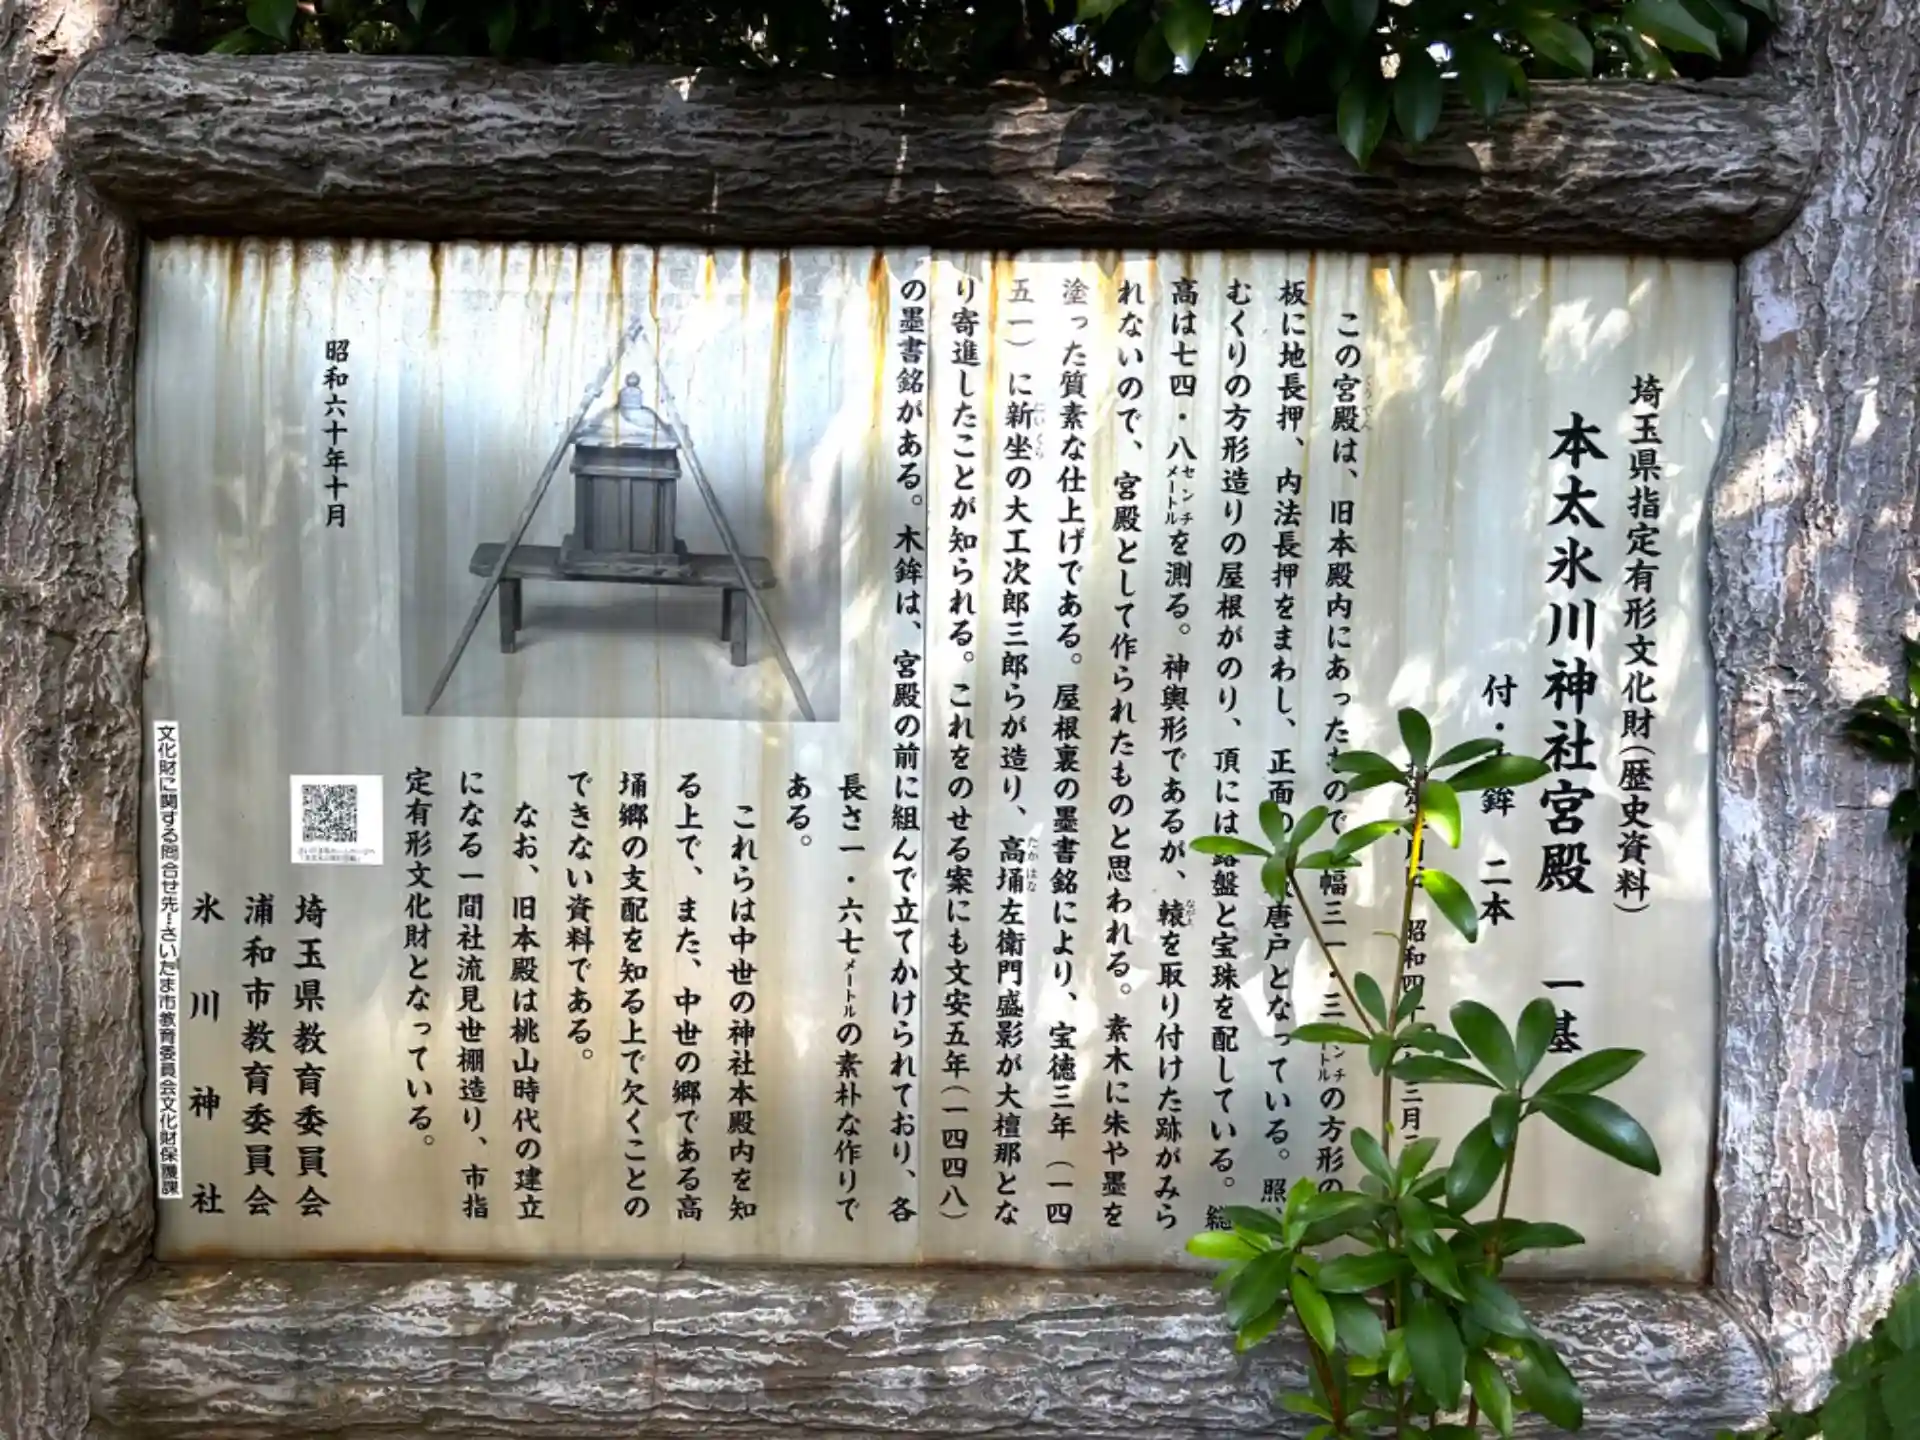 埼玉県指定有形文化財(歴史資料)
本太氷川神社宮殿 一基
付・ 鉾 二本
昭和四 三月
この宮殿は、旧本殿内にあった ので 幅三一・三 の方形の
板に地長押、内法長押をまわし、正面の 唐戸となっている。照、
むくりの方形造りの屋根がのり、頂には露盤と宝珠を配している。総
高は七四・八センチメートルを測る。神輿形であるが、轅を取り付けた跡がみら
れないので、宮殿として作られたものと思われる。素木に朱や墨を
塗った質素な仕上げである。屋根裏の墨書銘により、宝徳三年(一四
五一)に新坐の大工次郎三郎らが造り、高埇左衛門盛影が大檀那とな
り寄進したことが知られる。これをのせる案にも文安五年(一四四八)
の墨書銘がある。木鉾は、宮殿の前に組んで立てかけられており、各
長さ一・六七メートルの素朴な作りで
ある。
これらは中世の神社本殿内を知
る上で、また、中世の郷である高
埇郷の支配を知る上で欠くことの
できない資料である。
なお、旧本殿は桃山時代の建立
になる一間社流見世棚造り、市指
定有形文化財となっている。
昭和六十年十月
埼玉県教育委員会
浦和市教育委員会
氷川神社
文化財に関する問合せ先…さいたま市教育委員会文化財保護課